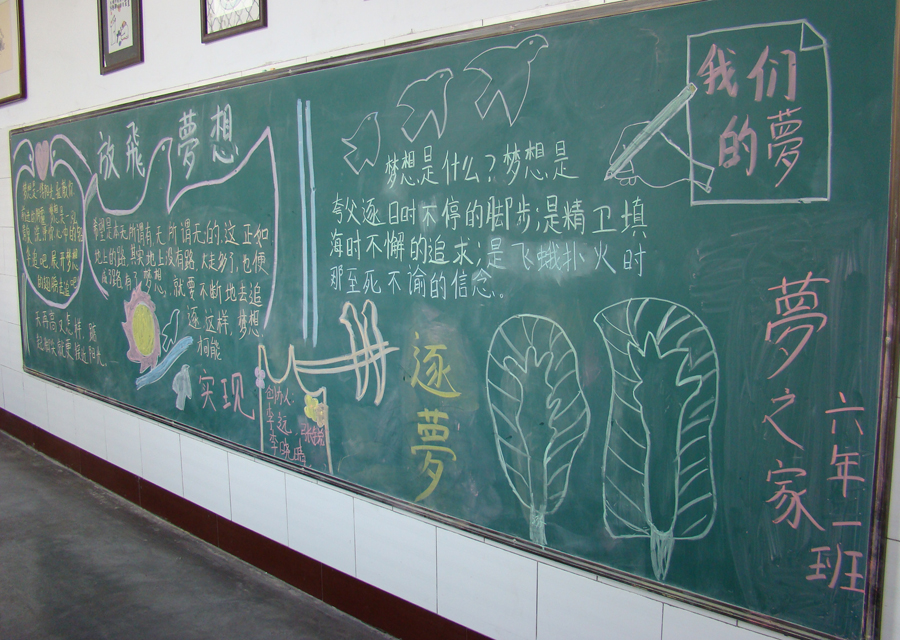 放飛夢想
希望是本无所谓有无所谓无的,这正如
地上的路,其实地上没有路,走多了,也便
成路有了梦想,就要不断地去追
逐这样,梦想
才可能
实现
天再高又怎样,踮
起脚尖就更接近阳光。
创办人:
李远
李晓晴
梦想是什么?梦想是
夸父逐日时不停的脚步;是精卫填
海时不懈的追求;是飞蛾扑火时
那至死不谕的信念。
逐夢
我们
的夢
夢之家
六年一班